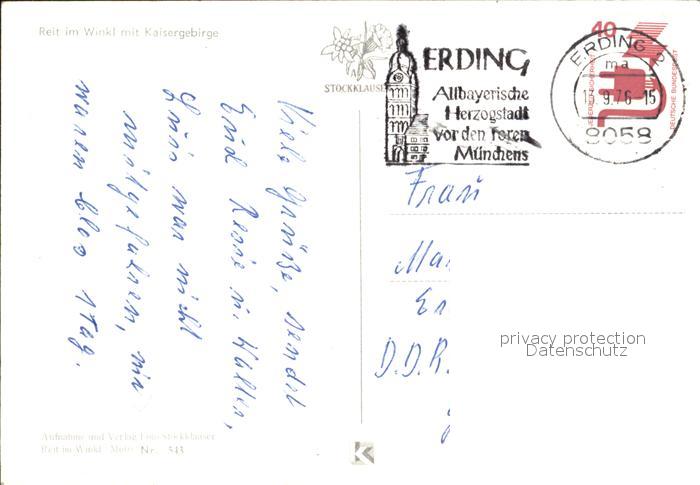 Reit im Winkl mit Kaisergebirge
STOCKKLAUSER
ERDING
Altbayerische
Herzogstadt
vor den Toren
Münchens
ERDING 2
ma
9.76-15
8058
40
DEUTSCHE BUNDESPOST
Viele Grüße, sendet
Emid u. Walter,
Luis war nicht
mitgefahren, wir
waren blos 1 Tag.
Frau
Ma
D.D.R.
privacy protection
Datenschutz
Aufnahme und Verlag Foto-Stockklauser
Reit im Winkl Nr. 543
K